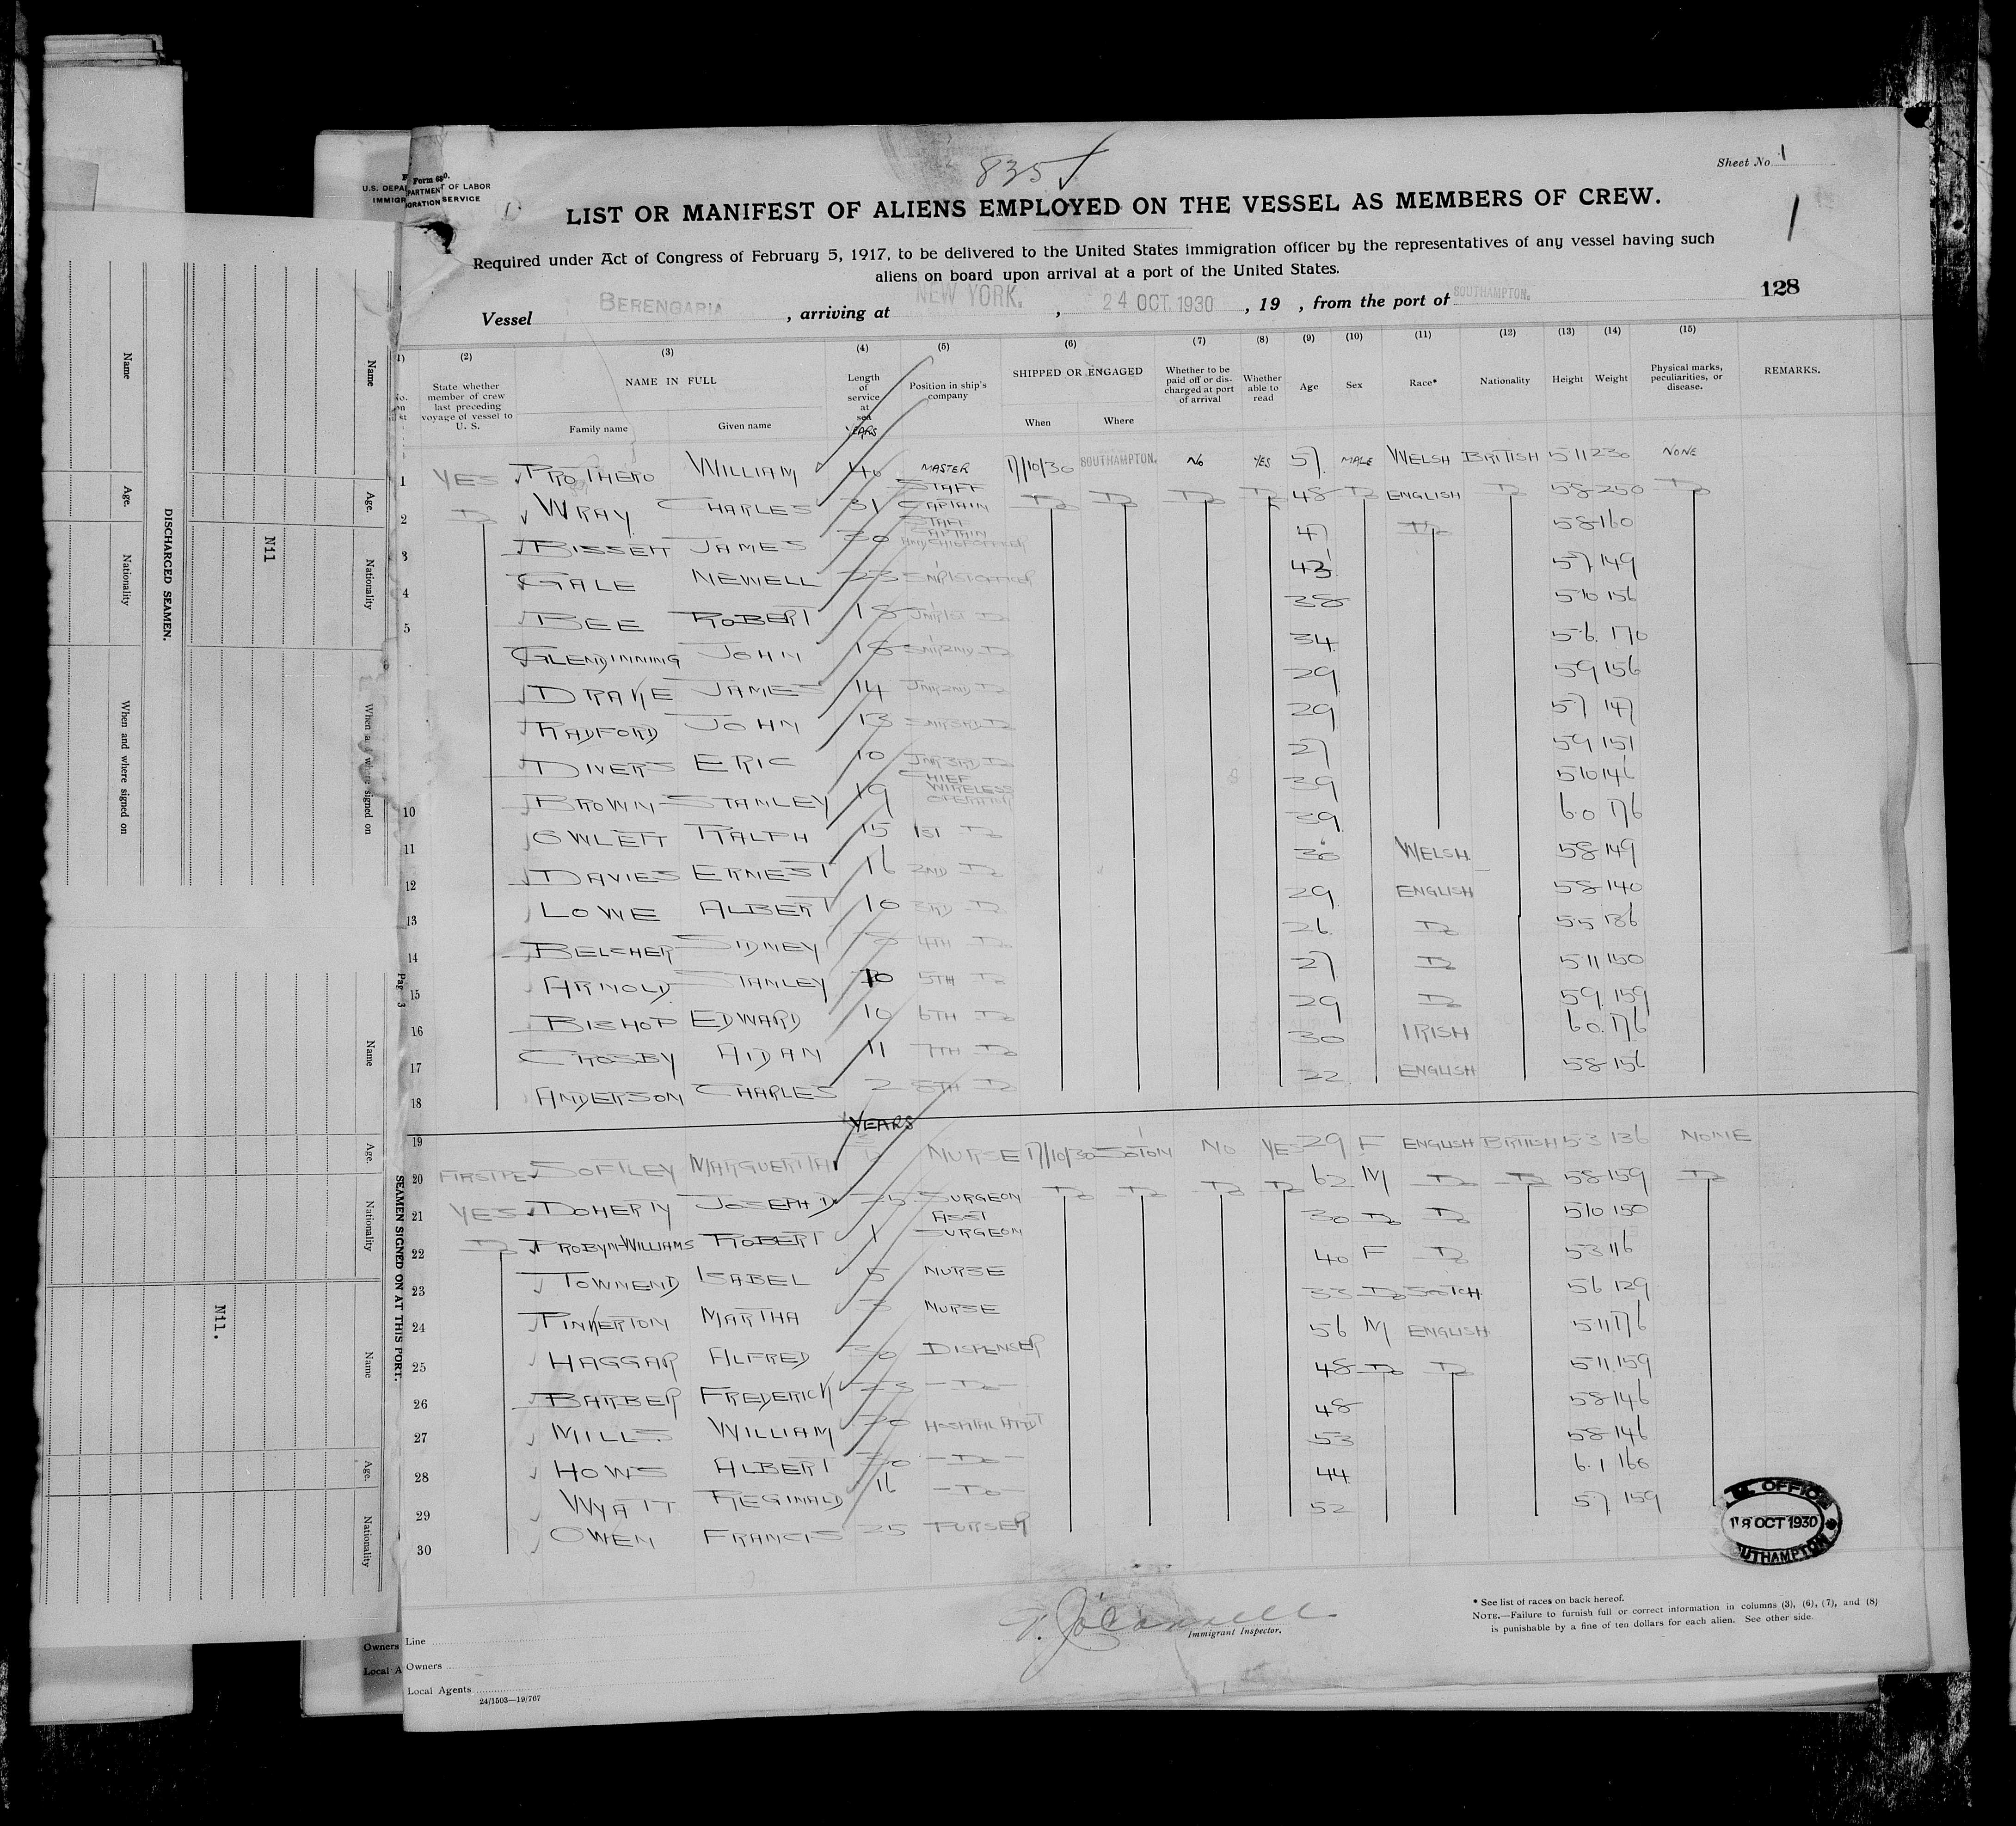 835 ✓
Sheet No 1
Form 680.
U.S. DEPARTMENT OF LABOR
IMMIGRATION SERVICE
LIST OR MANIFEST OF ALIENS EMPLOYED ON THE VESSEL AS MEMBERS OF CREW.
1
Required under Act of Congress of February 5, 1917, to be delivered to the United States immigration officer by the representatives of any vessel having such
aliens on board upon arrival at a port of the United States.
128
Vessel BERENGARIA, arriving at NEW YORK., 24 OCT. 1930, 19 , from the port of SOUTHAMPTON.
(2) (3) (4) (5) (6) (7) (8) (9) (10) (11) (12) (13) (14) (15)
State whether member of crew last preceding voyage of vessel to U. S. NAME IN FULL Family name Given name Length of service at sea YEARS Position in ship's company SHIPPED OR ENGAGED When Where Whether to be paid off or discharged at port of arrival Whether able to read Age Sex Race* Nationality Height Weight Physical marks, peculiarities, or disease. REMARKS.
1 YES PROTHERO WILLIAM 40 MASTER 17/10/30 SOUTHAMPTON. NO YES 57 MALE WELSH BRITISH 5 11 230 NONE
2 Do WRAY CHARLES 31 STAFF CAPTAIN Do Do Do Do 48 Do ENGLISH Do 58 250 Do
3 BISSETT JAMES 30 STAFF CAPTAIN AND CHIEF OFFICER 47 Do 58 160
4 GALE NEWELL 23 SNR 1ST OFFICER 43 57 149
5 BEE ROBERT 18 JNR 1ST Do 38 510 156
GLENDINNING JOHN 18 SNR 2ND Do 34 56 170
DRAKE JAMES 14 JNR 2ND Do 29 59 156
RADFORD JOHN 13 SNR 3RD Do 29 57 147
DIVERS ERIC 10 JNR 3RD Do 27 59 151
10 BROWN STANLEY 19 CHIEF WIRELESS OPERATOR 39 510 146
11 OWLETT RALPH 15 1ST Do 39 6.0 176
12 DAVIES ERNEST 16 2ND Do 36 WELSH 58 149
13 LOWE ALBERT 10 3RD Do 29 ENGLISH 58 140
14 BELCHER SIDNEY 8 4TH Do 26 Do 55 136
15 ARNOLD STANLEY 10 5TH Do 27 Do 511 150
16 BISHOP EDWARD 10 6TH Do 29 Do 59 159
17 CROSBY AIDAN 11 7TH Do 30 IRISH 60 176
18 ANDERSON CHARLES 2 8TH Do 22 ENGLISH 58 156
19 YEARS
20 SOFTLEY MARGUERITA NURSE 17/10/30 SOTON NO YES 29 F ENGLISH BRITISH 5 3 136 NONE
21 YES DOHERTY JOSEPH 25 SURGEON Do Do Do Do 62 M Do Do 58 159 Do
22 Do PROBYN-WILLIAMS ROBERT 1 ASST SURGEON 30 Do Do 510 150
23 TOWNEND ISABEL 5 NURSE 40 F Do 53 116
24 PINKERTON MARTHA 3 NURSE 33 Do SCOTCH 56 129
25 HAGGAR ALFRED 30 DISPENSER 56 M ENGLISH 511 176
26 BARBER FREDERICK 23 - Do - 48 Do Do 511 159
27 MILLS WILLIAM 20 HOSPITAL ATTDT 48 58 146
28 HOWS ALBERT 30 - Do - 53 58 146
29 WYATT REGINALD 16 - Do - 44 6.1 160
30 OWEN FRANCIS 25 PURSER 52 57 159
OCT 1930
SOUTHAMPTON
Immigrant Inspector.
* See list of races on back hereof.
NOTE.—Failure to furnish full or correct information in columns (3), (6), (7), and (8)
is punishable by a fine of ten dollars for each alien. See other side.
Line
Owners
Local Agents
24/1503—19/767
Name Age. Nationality When and where signed on
DISCHARGED SEAMEN.
Nil
Name Age. Nationality When and where signed on
SEAMEN SIGNED ON AT THIS PORT.
Nil.
Name Age. Nationality
Name Age. Nationality